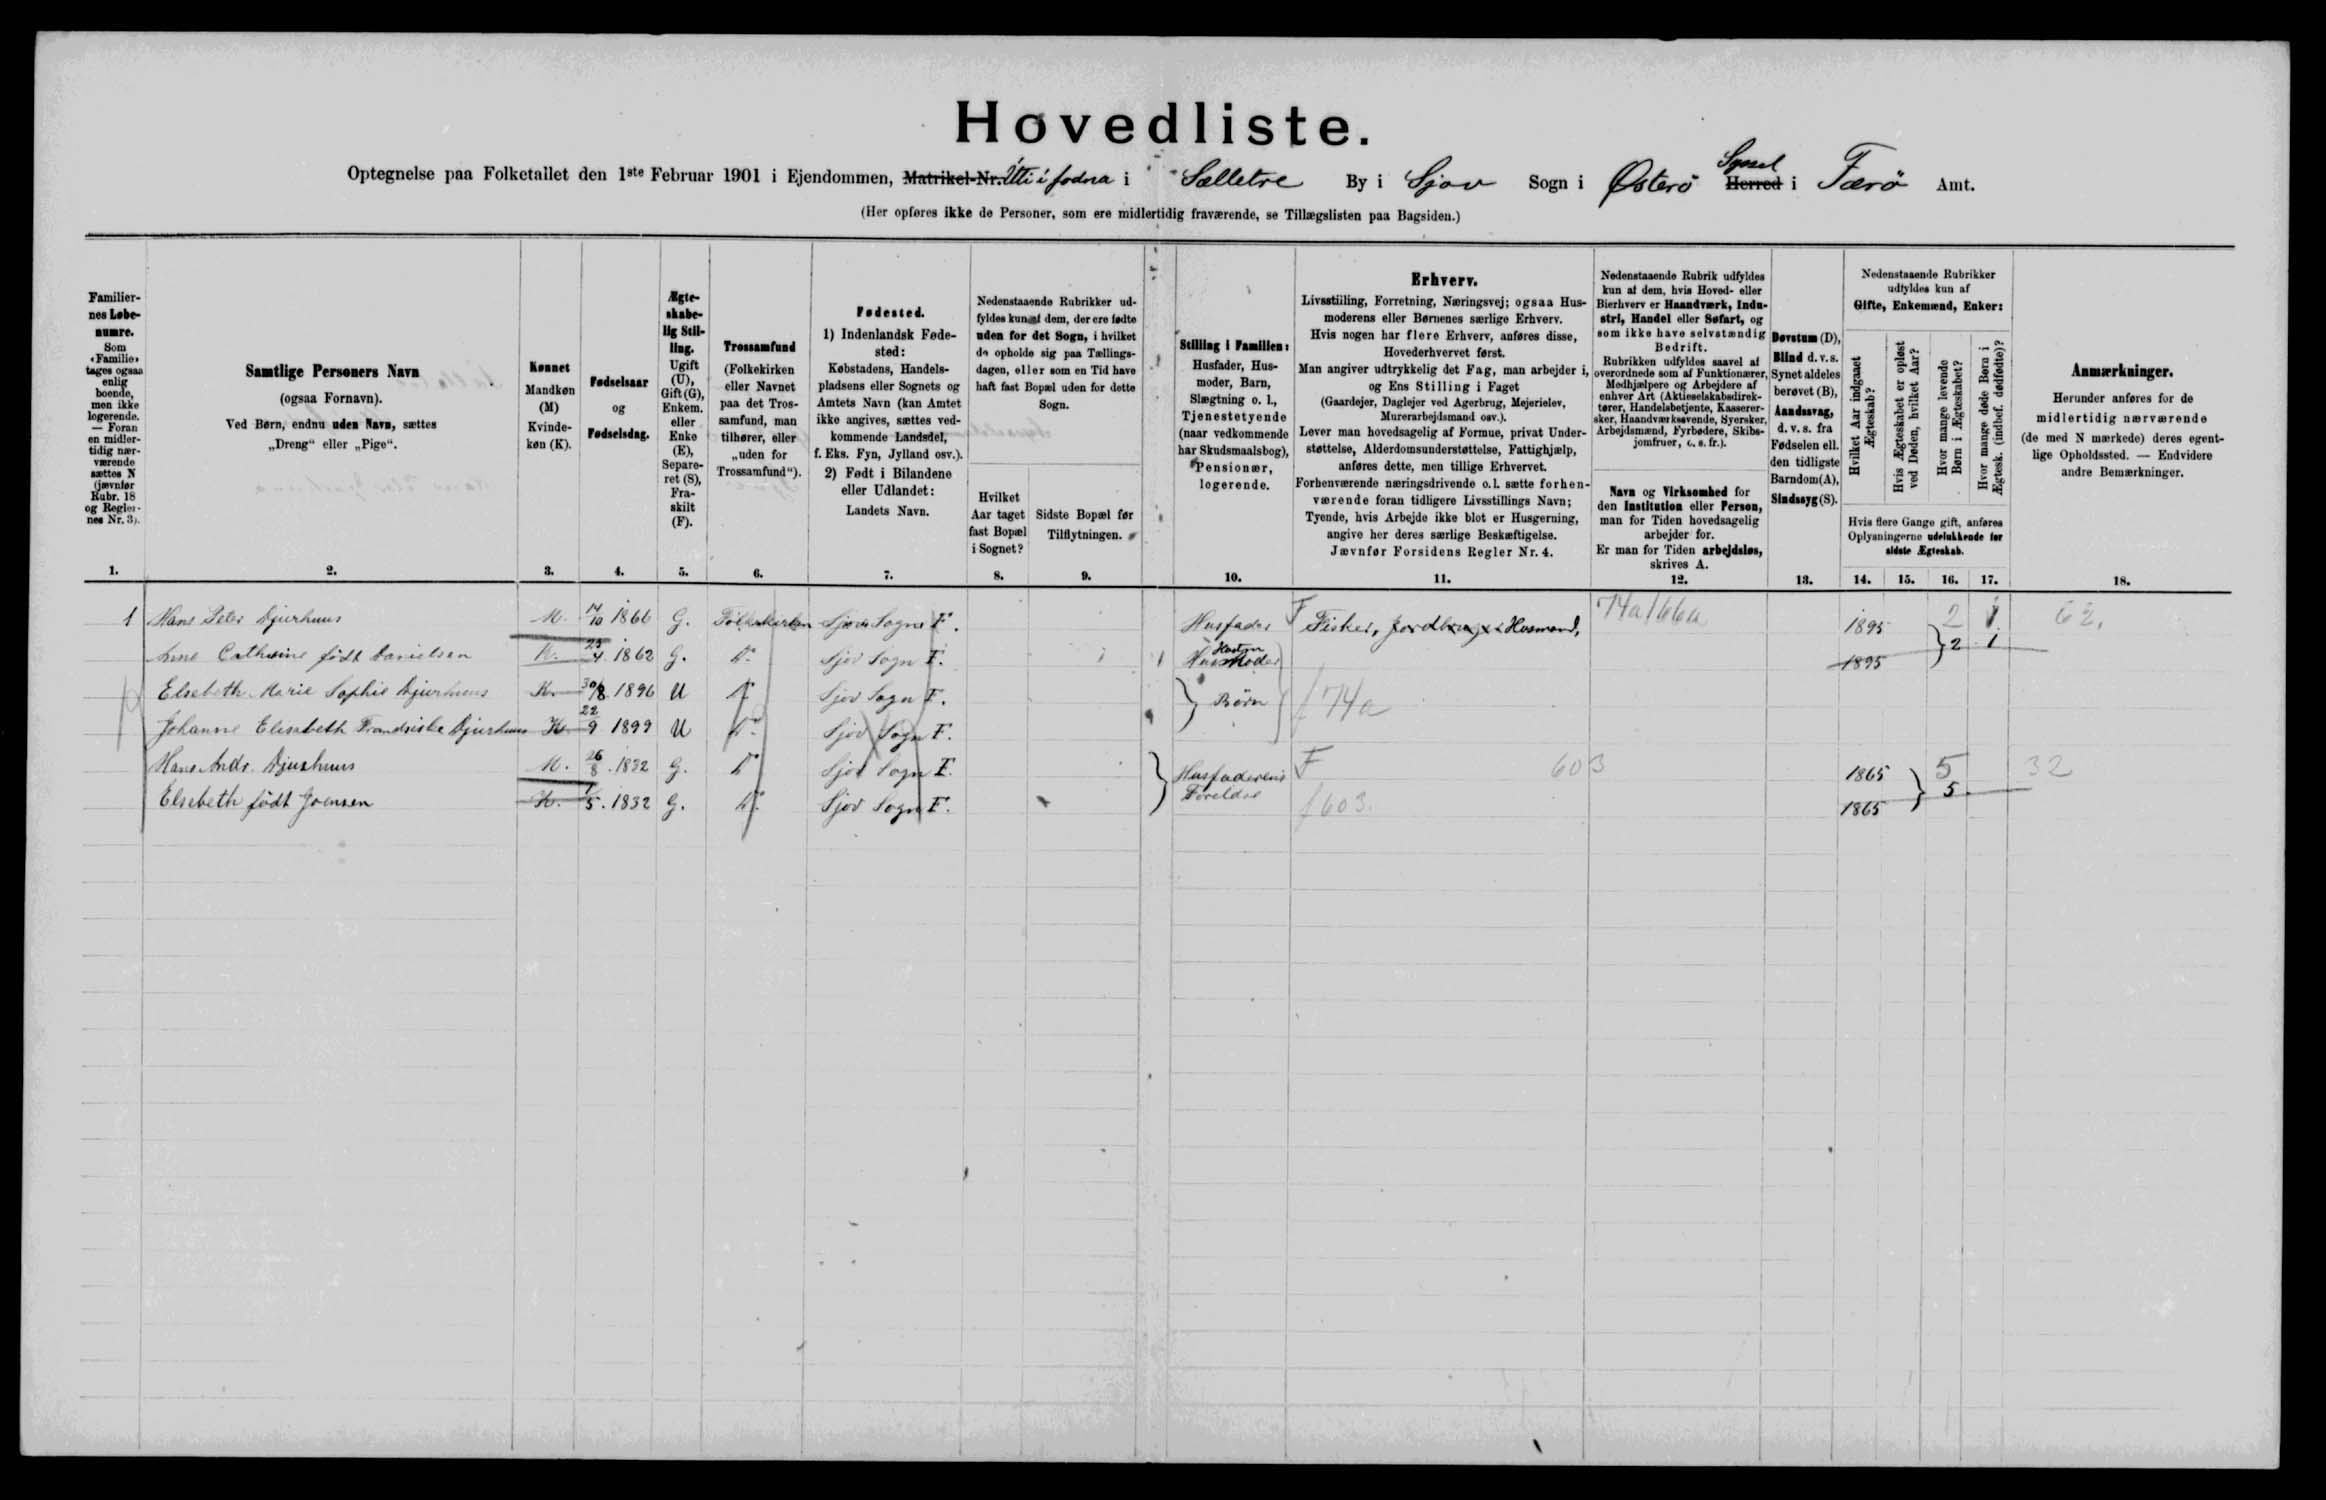 Hovedliste.
Optegnelse paa Folketallet den 1ste Februar 1901 i Ejendommen, Matrikel-Nr. Útti í fodna i Selletræ By i Sjov Sogn i Østerö Syssel Herred i Færö Amt.
(Her opføres ikke de Personer, som ere midlertidig fraværende, se Tillægslisten paa Bagsiden.)
Familiernes Løbenumre.
Som «Familie» tages ogsaa enlig boende, men ikke logerende. — Foran en midlertidig nærværende sættes N (jævnfør Rubr. 18 og Reglernes Nr. 3).
1.
Samtlige Personers Navn
(ogsaa Fornavn).
Ved Børn, endnu uden Navn, sættes
„Dreng“ eller „Pige“.
2.
Kønnet
Mandkøn (M)
Kvindekøn (K).
3.
Fødselsaar
og
Fødselsdag.
4.
Ægteskabelig Stilling.
Ugift (U), Gift (G), Enkem. eller Enke (E), Separeret (S), Fraskilt (F).
5.
Trossamfund
(Folkekirken eller Navnet paa det Trossamfund, man tilhører, eller „uden for Trossamfund“).
6.
Fødested.
1) Indenlandsk Fødested:
Købstadens, Handelspladsens eller Sognets og Amtets Navn (kan Amtet ikke angives, sættes vedkommende Landsdel, f. Eks. Fyn, Jylland osv.).
2) Født i Bilandene eller Udlandet:
Landets Navn.
7.
Nedenstaaende Rubrikker udfyldes kun af dem, der ere fødte uden for det Sogn, i hvilket de opholde sig paa Tællingsdagen, eller som en Tid have haft fast Bopæl uden for dette Sogn.
Hvilket Aar taget fast Bopæl i Sognet?
8.
Sidste Bopæl før Tilflytningen.
9.
Stilling i Familien:
Husfader, Husmoder, Barn, Slægtning o. l., Tjenestetyende (naar vedkommende har Skudsmaalsbog), Pensionær, logerende.
10.
Erhverv.
Livsstilling, Forretning, Næringsvej; ogsaa Husmoderens eller Børnenes særlige Erhverv.
Hvis nogen har flere Erhverv, anføres disse, Hovederhvervet først.
Man angiver udtrykkelig det Fag, man arbejder i, og Ens Stilling i Faget
(Gaardejer, Daglejer ved Agerbrug, Mejerielev, Murerarbejdsmand osv.).
Lever man hovedsagelig af Formue, privat Understøttelse, Alderdomsunderstøttelse, Fattighjælp, anføres dette, men tillige Erhvervet.
Forhenværende næringsdrivende o. l. sætte forhenværende foran tidligere Livsstillings Navn;
Tyende, hvis Arbejde ikke blot er Husgerning, angive her deres særlige Beskæftigelse.
Jævnfør Forsidens Regler Nr. 4.
11.
Nedenstaaende Rubrik udfyldes kun af dem, hvis Hoved- eller Bierhverv er Haandværk, Industri, Handel eller Søfart, og som ikke have selvstændig Bedrift.
Rubrikken udfyldes saavel af overordnede som af Funktionærer, Medhjælpere og Arbejdere af enhver Art (Aktieselskabsdirektører, Handelsbetjente, Kasserersker, Haandværkssvende, Syersker, Arbejdsmænd, Fyrbødere, Skibsjomfruer, o. s. fr.).
Navn og Virksomhed for den Institution eller Person, man for Tiden hovedsagelig arbejder for.
Er man for Tiden arbejdsløs, skrives A.
12.
Døvstum (D), Blind d. v. s. Synet aldeles berøvet (B), Aandssvag, d. v. s. fra Fødselen ell. den tidligste Barndom (A), Sindssyg (S).
13.
Nedenstaaende Rubrikker udfyldes kun af
Gifte, Enkemænd, Enker:
Hvilket Aar indgaaet Ægteskab?
Hvis Ægteskabet er opløst ved Døden, hvilket Aar?
Hvor mange levende Børn i Ægteskabet?
Hvor mange døde Børn i Ægtesk. (indbef. dødfødte)?
Hvis flere Gange gift, anføres Oplysningerne udelukkende for sidste Ægteskab.
14. 15. 16. 17.
Anmærkninger.
Herunder anføres for de midlertidig nærværende (de med N mærkede) deres egentlige Opholdssted. — Endvidere andre Bemærkninger.
18.
1 Hans Peter Djurhuus M. 14/10 1866 G. Folkekirken Sjov Sogn F. Husfader F Fisker, Jordbruger Husmand, 74a/66a 1895 2 1 62.
Anne Cathrine födt Danielsen K. 23/4 1862 G. Do Sjov Sogn F. Husmoder Hustru 1895 2 1
Elsebeth Marie Sophie Djurhuus K. 30/8 1896 U Do Sjov Sogn F. Børn f 74a
Johanne Elisabeth Frandsiska Djurhuus K. 22/9 1899 U Do Sjov Sogn F.
Hans Andr. Djurhuus M. 26/8 1832 G. Do Sjov Sogn F. Husfaderens F 603 1865 5 32
Elsebeth født Joensen K. /5. 1832 G. Do Sjov Sogn F. Foreldre f 603. 1865 5